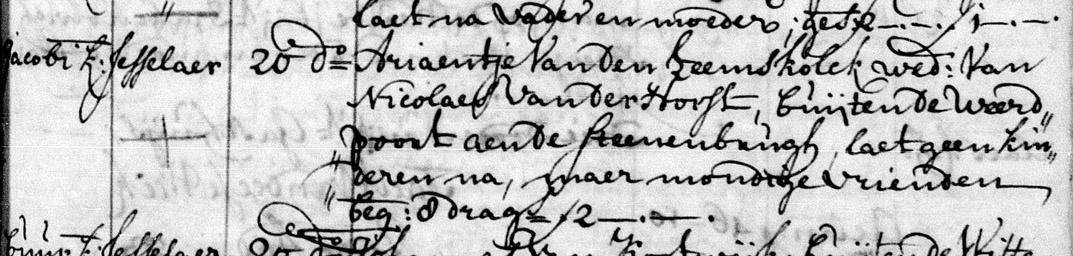 laet na vader en moeder, gest 2 —.— 1 —.—.
Jacobi k: Jesselaer 20 do = Ariaentje Van den Heemskolck wed: Van
Nicolaes Van der Horst, buijten de Weerd„
„poort aen de Steenenbrugh, laet geen kin„
„deren na, maer mondige vrienden
beg: 8 drag = 12 —.—.
k: Jesselaer 20 do buijten de Witte